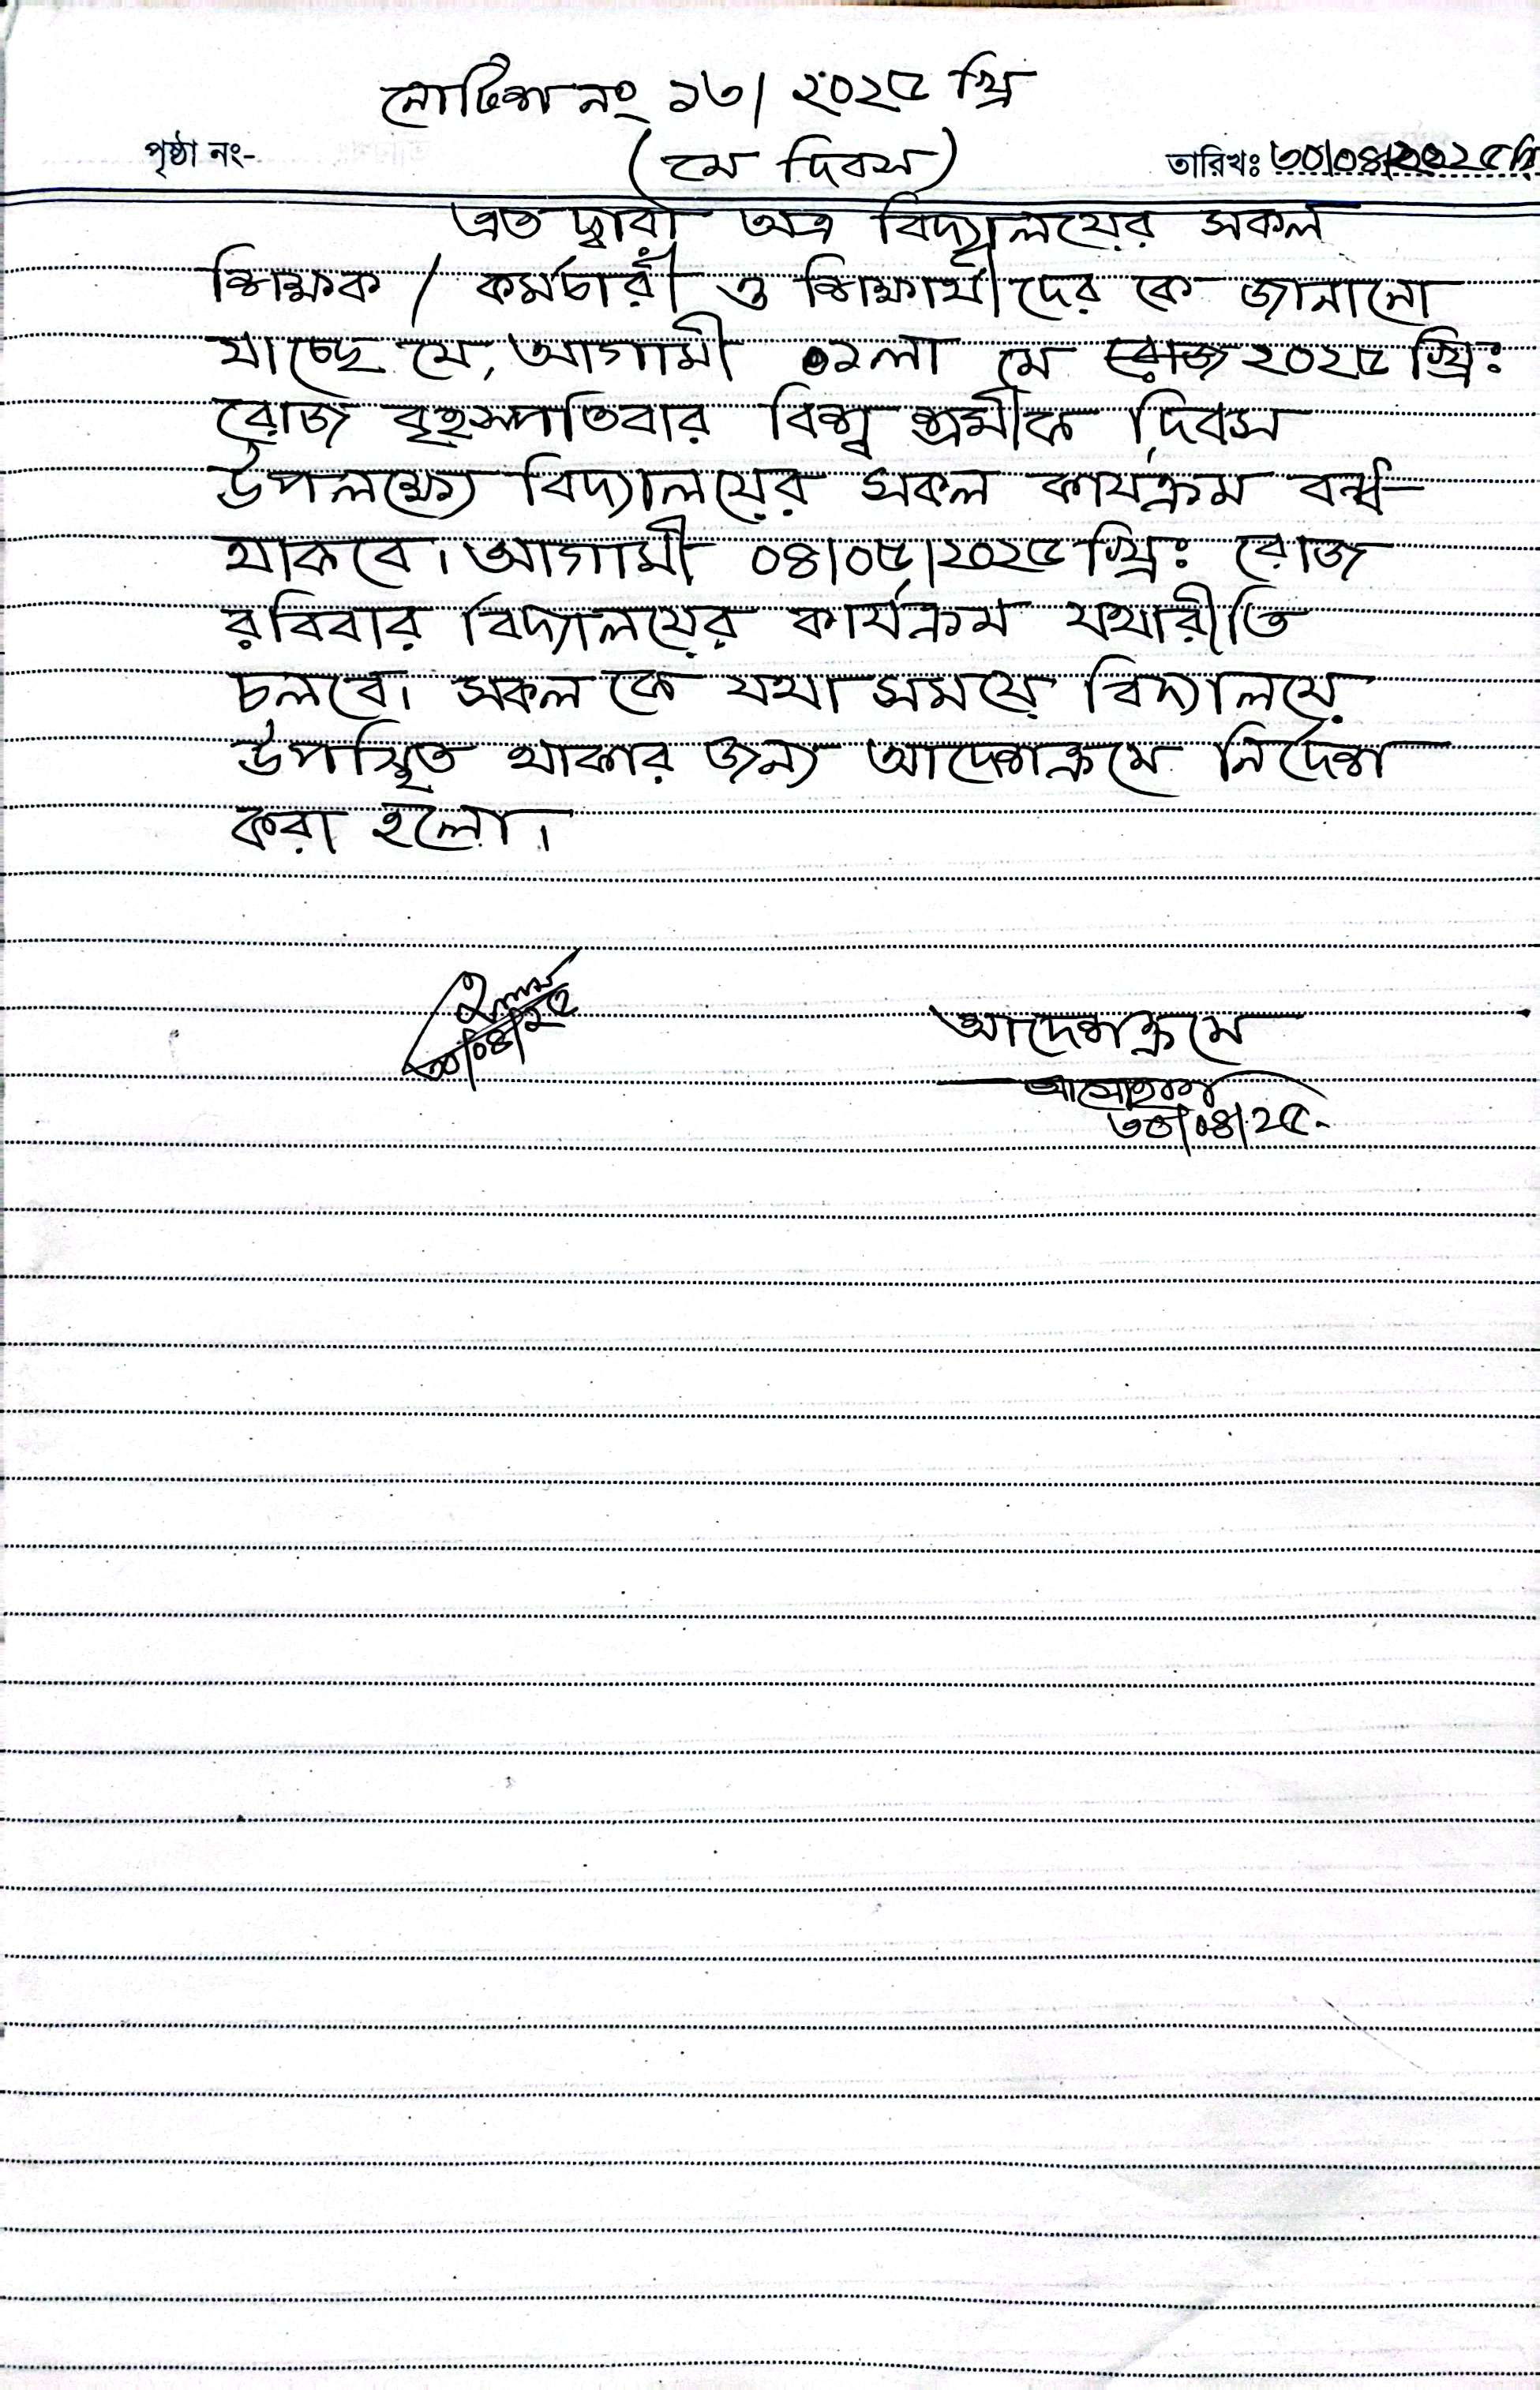 নোটিশ নং ১৬/২০২৫ খ্রি
(মে দিবস)
পৃষ্ঠা নং-
তারিখঃ ৩০/০৪/২০২৫ খ্রি
এত দ্বারা অত্র বিদ্যালয়ের সকল
শিক্ষক / কর্মচারী ও শিক্ষার্থীদের কে জানানো
যাচ্ছে যে, আগামী ০১লা মে ২০২৫ খ্রিঃ
রোজ বৃহস্পতিবার বিশ্ব শ্রমীক দিবস
উপলক্ষ্যে বিদ্যালয়ের সকল কার্যক্রম বন্ধ
থাকবে। আগামী ০৪/০৫/২০২৫ খ্রিঃ রোজ
রবিবার বিদ্যালয়ের কার্যক্রম যথারীতি
চলবে। সকল কে যথা সময়ে বিদ্যালয়ে
উপস্থিত থাকার জন্য আদেশক্রমে নির্দেশ
করা হলো।
৩০/০৪/২৫
আদেশক্রমে
৩০/০৪/২৫